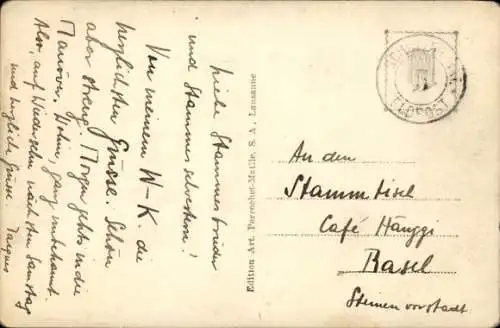 Liebe Stammesbrüder
und Stammesschwestern!
Von meinem W-K. die
herzlichsten Grüsse. Schön
aber streng. Morgen gehts in die
Manöver. Wohin, ganz unbekannt.
Also, auf Wiedersehn nächsten Samstag
und herzliche Grüsse Jacques
Edition Art. Perrochet-Matile, S. A., Lausanne
FELDPOST
An den
Stammtisch
Café Hänggi
Basel
Steinenvorstadt